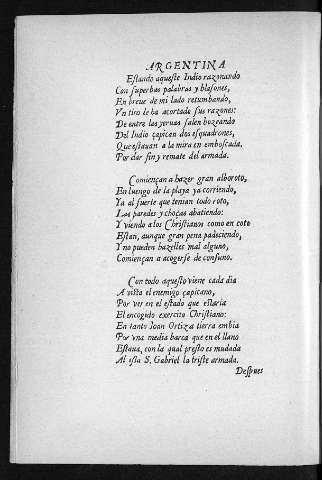 ARGENTINA
Estando aqueste Indio razonando
Con superbas palabras y blasones,
En breue de mi lado retumbando,
Vn tiro le ha acortado sus razones:
De entre las yeruas salen bozeando
Del Indio çapican dos esquadrones,
Que estauan a la mira en emboscada,
Por dar fin y remate del armada.
Comiençan a hazer gran alboroto,
En luengo de la playa ya corriendo,
Ya al fuerte que tenian todo roto,
Las paredes y choças abatiendo:
Y viendo a los Christianos como en coto
Estan, aunque gran pena padeciendo,
Y no pueden hazelles mal alguno,
Comiençan a acogerse de consuno.
Con todo aquesto viene cada dia
A vista el enemigo çapicano,
Por ver en el estado que estaria
El encogido exercito Christiano:
En tanto Ioan Ortiz a tierra embia
Por vna media barca que en el llano
Estaua, con la qual presto es mudada
Al esta S. Gabriel la triste armada.
Despues